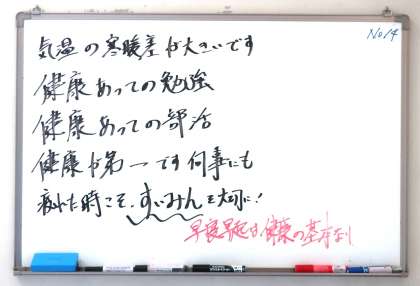 No14
気温の寒暖差が大きいです
健康あっての勉強
健康あっての部活
健康が第一です何事にも
疲れた時こそ、すいみんを大切に!
早寝早起は健康の基本なり